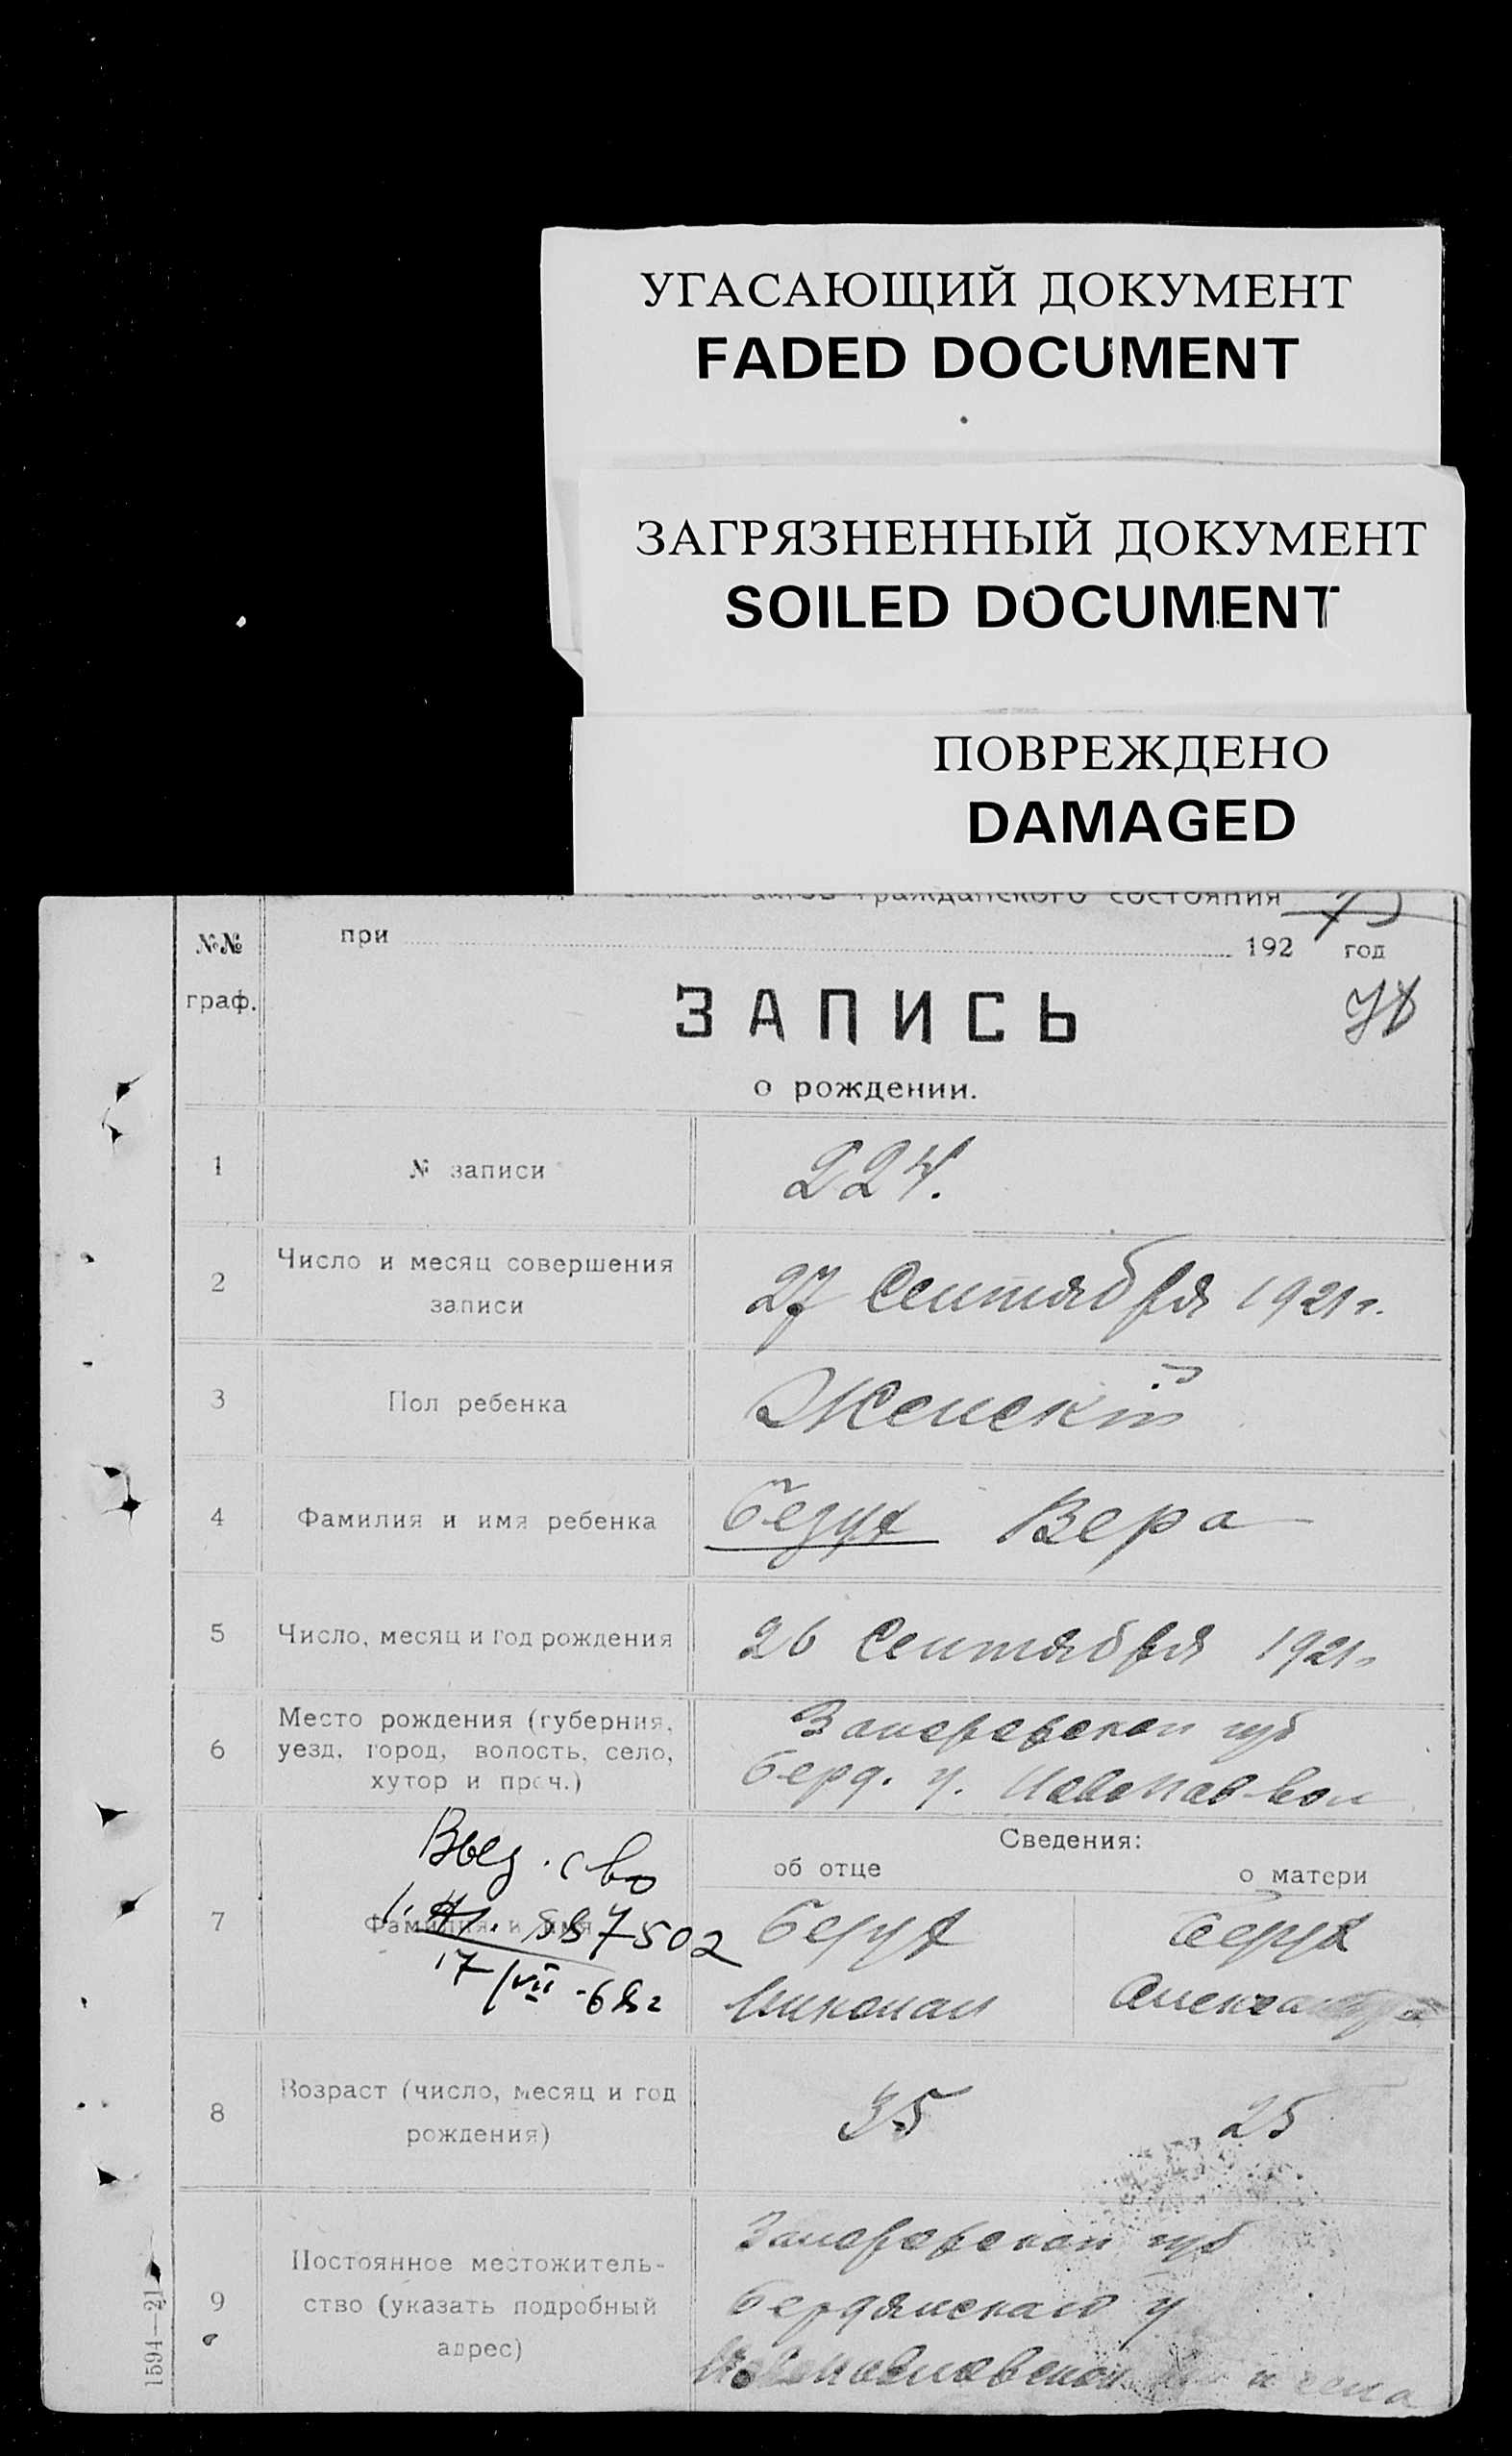 УГАСАЮЩИЙ ДОКУМЕНТ
FADED DOCUMENT
ЗАГРЯЗНЕННЫЙ ДОКУМЕНТ
SOILED DOCUMENT
ПОВРЕЖДЕНО
DAMAGED
актов гражданского состояния
№№ граф.
при 192 год
ЗАПИСЬ
о рождении.
1 № записи 224.
2 Число и месяц совершения
записи
27 Сентября 1921 г.
3 Пол ребенка Женскій
4 Фамилия и имя ребенка Вера
5 Число, месяц и год рождения 26 Сентября 1921 г
6 Место рождения (губерния,
уезд, город, волость, село,
хутор и проч.)
губ
Берд. у.
Сведения:
об отце о матери
7 Фамилия и имя
I. 887502
17/VII-68г
Николай
8 Возраст (число, месяц и год
рождения)
35 25
9 Постоянное местожитель-
ство (указать подробный
адрес)
губ
Бердянскаго у
села
1594—21